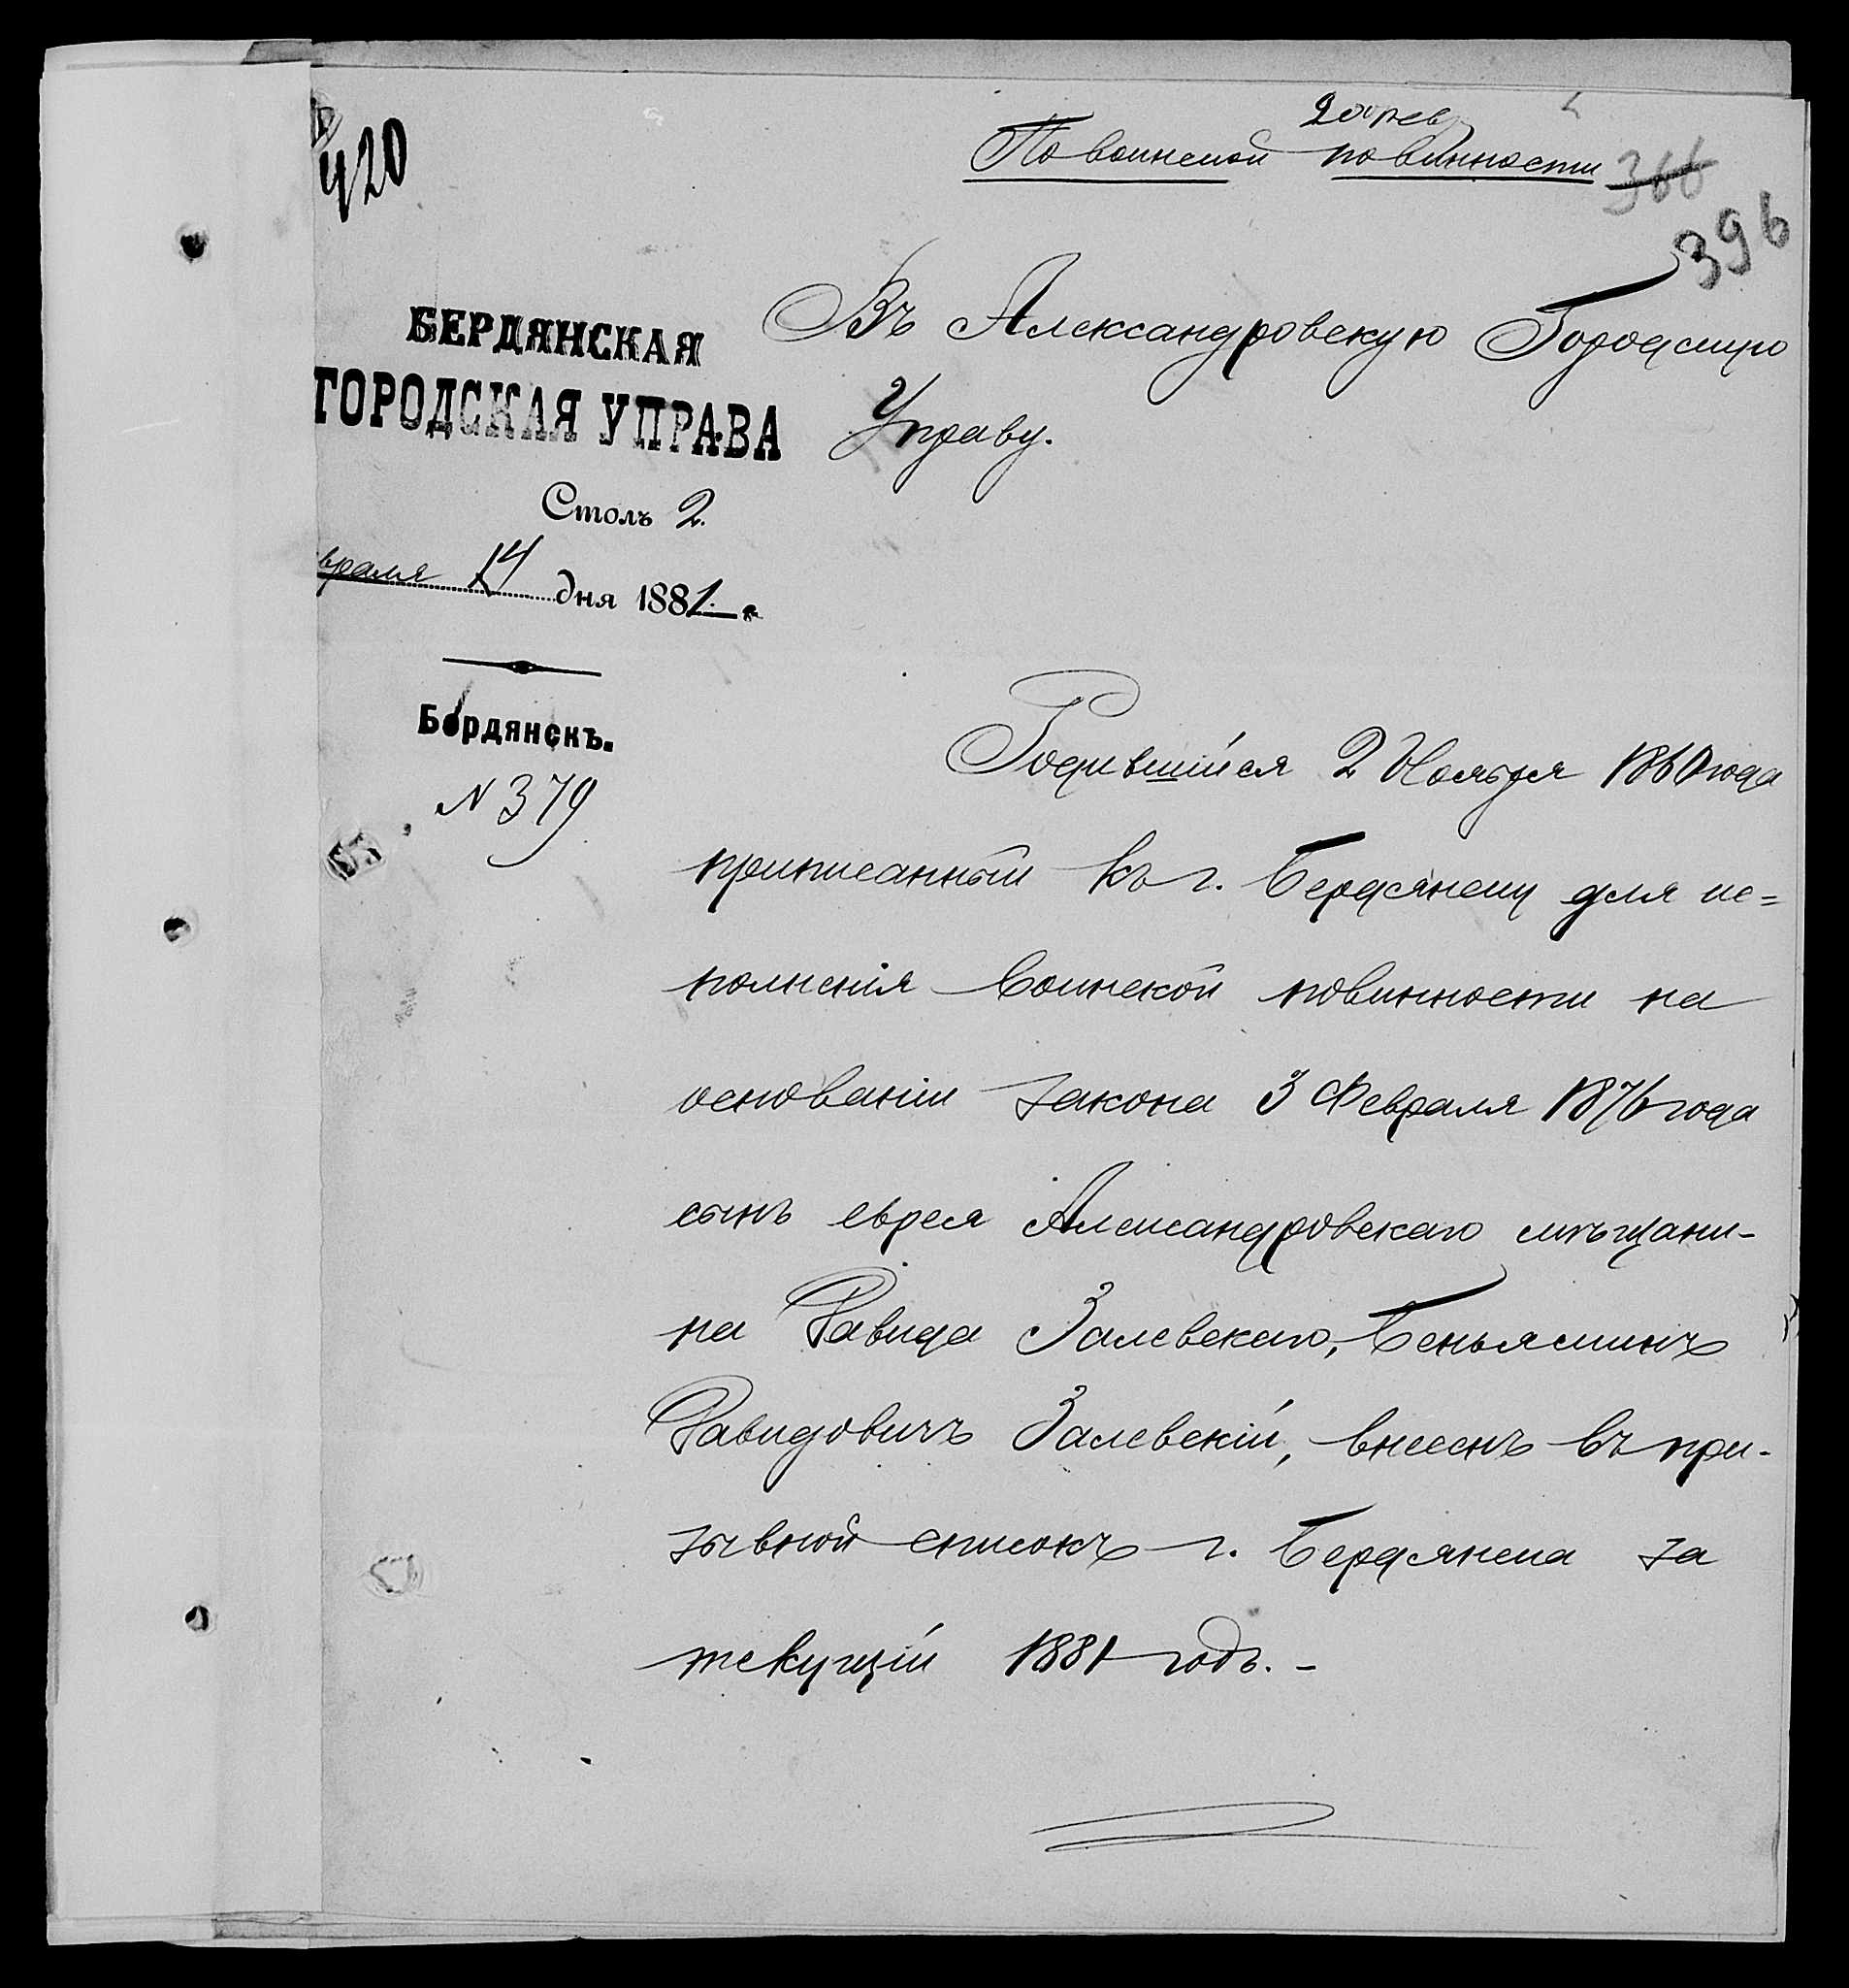 420
По воинской повинности
366
396
БЕРДЯНСКАЯ
ГОРОДСКАЯ УПРАВА
Столъ 2.
враля 14 дня 1881 г.
Бердянскъ.
N 379
Въ Александровскую Городскую
Управу.
Родившійся 2 Ноября 1860 года
приписанный къ г. Бердянску для ис=
полненія воинской повинности на
основаніи закона 3 Февраля 1876 года
сынъ еврея Александровскаго мѣщани-
на Давида Залевскаго, Беньяминъ
Давидовичъ Залевскій, внесенъ въ при-
зывной списокъ г. Бердянска за
текущій 1881 годъ. -